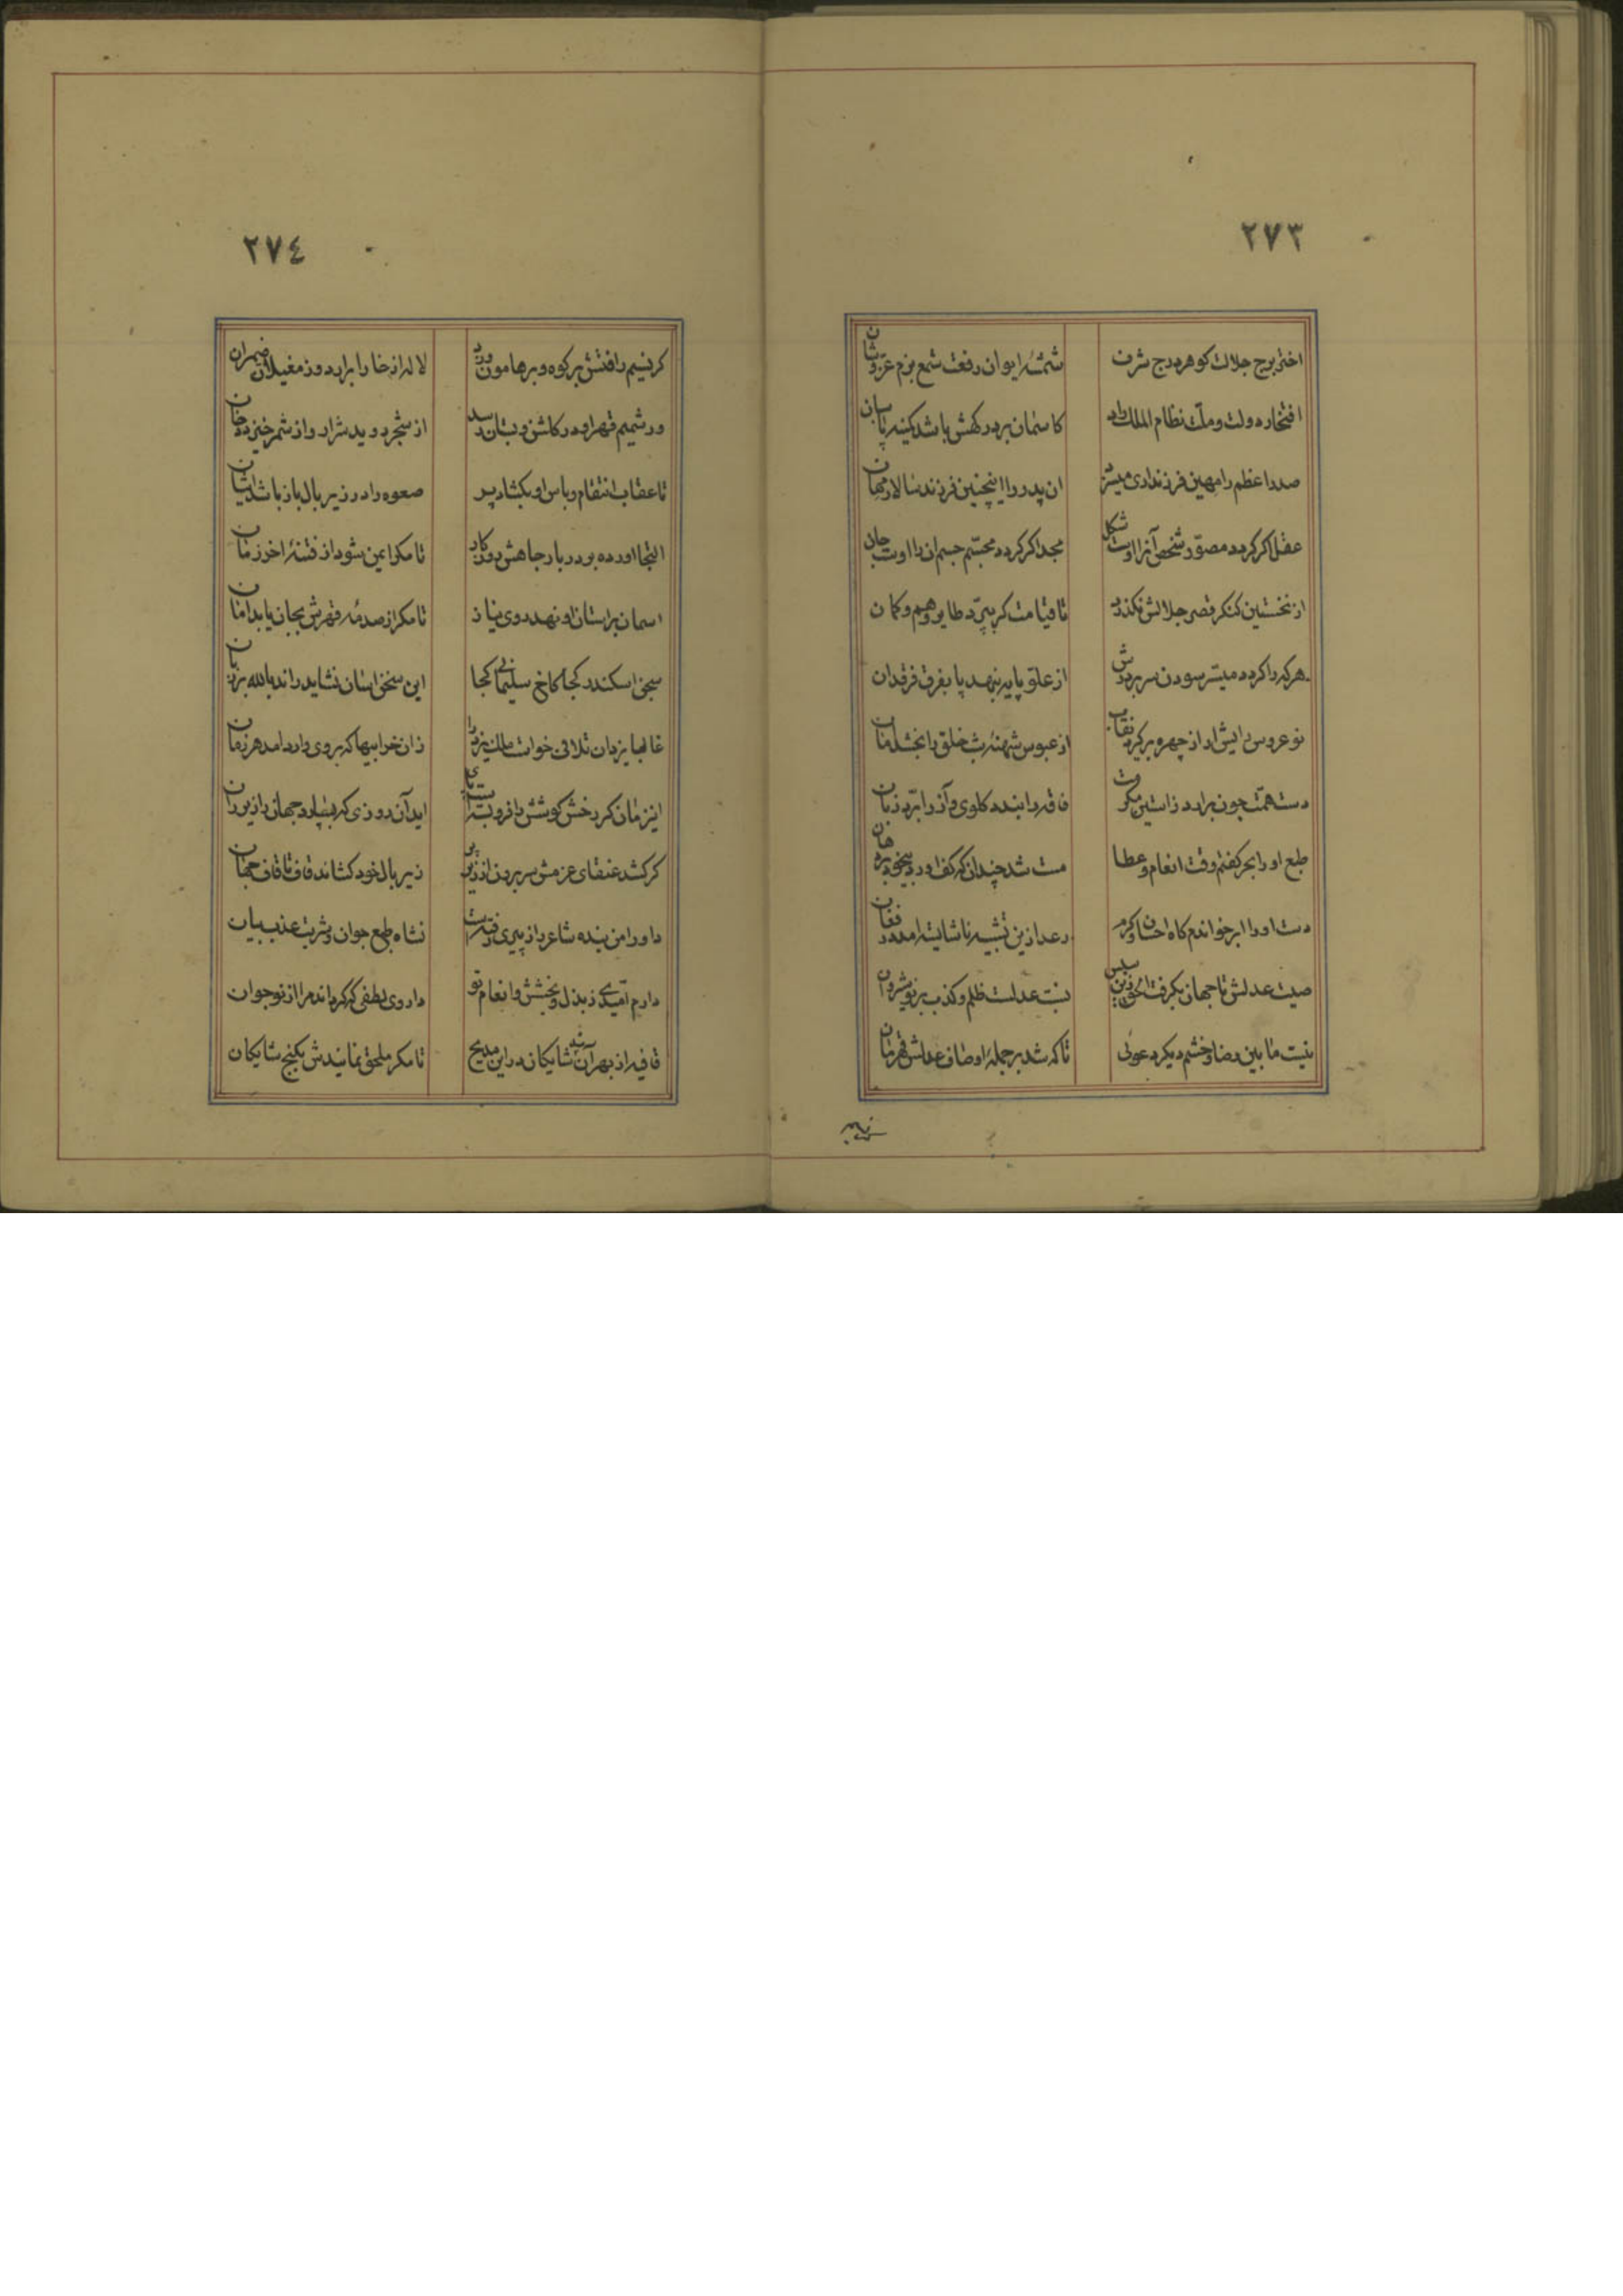 ۲۷۳
اختر برج جلالت کوهر درج شرف
شمسهٔ ایوان رفعت شمع بزم عز و شان
افتخار دولت و ملت نظام الملک راد
کاسمان بر درکهش باشد کمینه پاسبان
صدر اعظم را مهین فرزند
ان پدر را اینچنین فرزند سالار مهان
عقل اکر کردد مصوّر شخص آنرا اوست شکل
مجد اکر کردد مجسّم جسم ان را اوست جان
از نخستین کنکر قصر جلالش نکذرد
تا قیامت کر بپرّد طایر وهم و کمان
هرکه را کردد میسّر سودن سر بر درش
از علوّ پایه بنهد پا بفرق فرقدان
نو عروس رایش ار از چهره برکیرد نقاب
از عبوس شهنهٔ شب خلق را بخشد امان
دست همّت چون برارد ز استین مکرمت
فاقه را بندد کلوی و آز را برّد زبان
طبع او را بحر کفتم وقت انعام و عطا
مست شد چندان که کف اورد بیخود بر دهان
دست او را ابر خواندم کاه احسان و کرم
رعد ازین تشبیه ناشایسته امد در فغان
صیت عدلش تا جهان بکرفت
بست عدلت ظلم و کذب بر نوشیروان
نیست ما بین رضا و خشم دیکر دعوئی
تا که شد بر جملهٔ اوصاف عدلش قهرمان
۲۷٤
کر نسیم رافتش بر کوه و بر هامون وزد
لاله از خارا برارد وز مغیلان ضیمران
ور شمیم قهر او در کلشن و بستان رسد
از شجر روید شرار و از ثمر خیزد دخان
تا عقاب انتقام و باس او بکشاد پر
صعوه را در زیر بال باز باشد اشیان
التجا اورده بر دربار جاهش روزکار
تا مکر ایمن شود از فتنهٔ اخر زمان
اسمان بر استان او نهد روی نیاز
تا مکر از صدمهٔ قهرش بجان یابد امان
سجن اسکندر کجا کاخ سلیمانی کجا
این سخن اسان نشاید راند بالله بر زبان
غالبا یزدان تلافی خواست ملک یزد را
زان خرابیها که بر وی وارد امد هر زمان
اینزمان کر رخش کوشش را فرو بسته است پای
اید آن روزی که بسپارد جهان را زیر ران
کر کشد عنقای عزمش سر برون از زیر پر
زیر بال خود کشاند قاف تا قاف جهان
داورا من بنده شاعر
نشاه طبع جوان و شربت عذب بیان
دارم امّیدی ز بذل و بخشش و انعام تو
داروی لطفی که کرداند مرا از نو جوان
قافیه از بهر آن شد شایکان در این مدیح
تا مکر ملحق نمائیدش بکنج شایکان